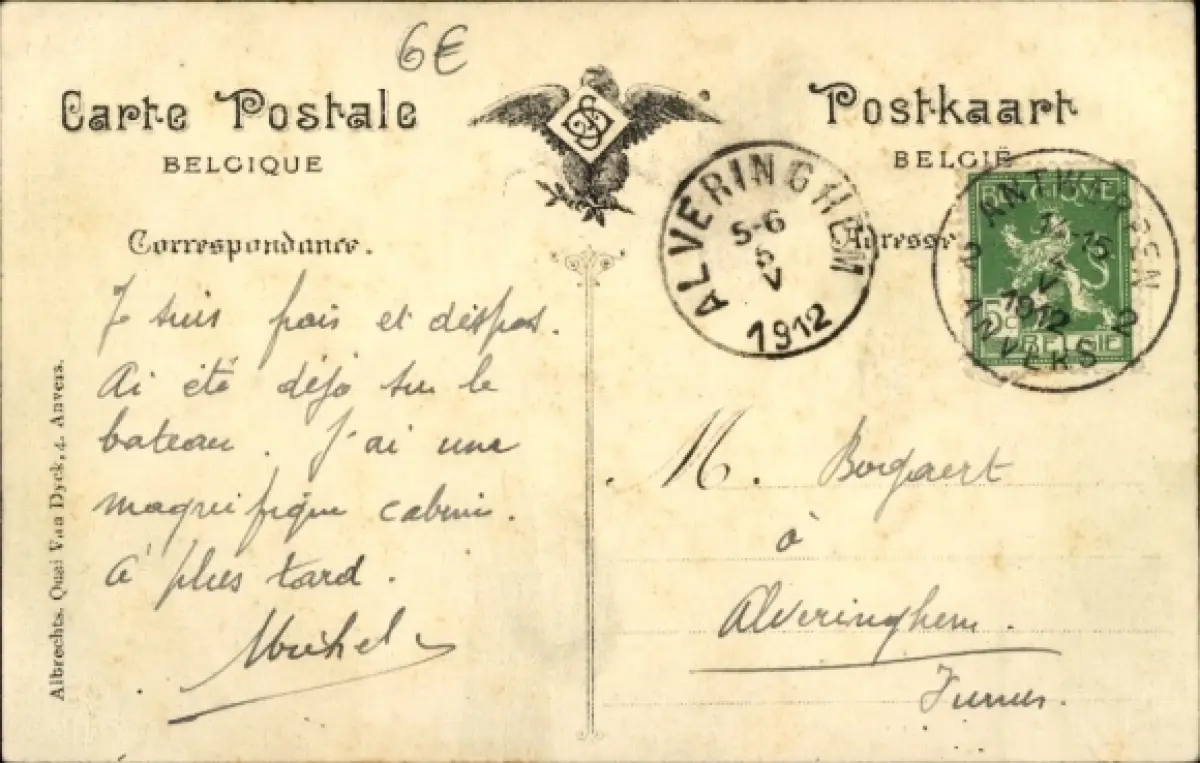 6€
Carte Postale
BELGIQUE
Postkaart
BELGIË
Correspondance.
Adresse
ALVERINGHEM
5-6
5
V
1912
ANTWERPEN
15
V
1912
2 2
ANVERS
BELGIQUE
BELGIË
Je suis frais et dispos.
Ai été déjà sur le
bateau. J'ai une
magnifique cabine.
à plus tard.
Michel
M. Bogaert
à
Alveringhem.
Furnes.
Albrechts. Quai Van Dyck, 4. Anvers.